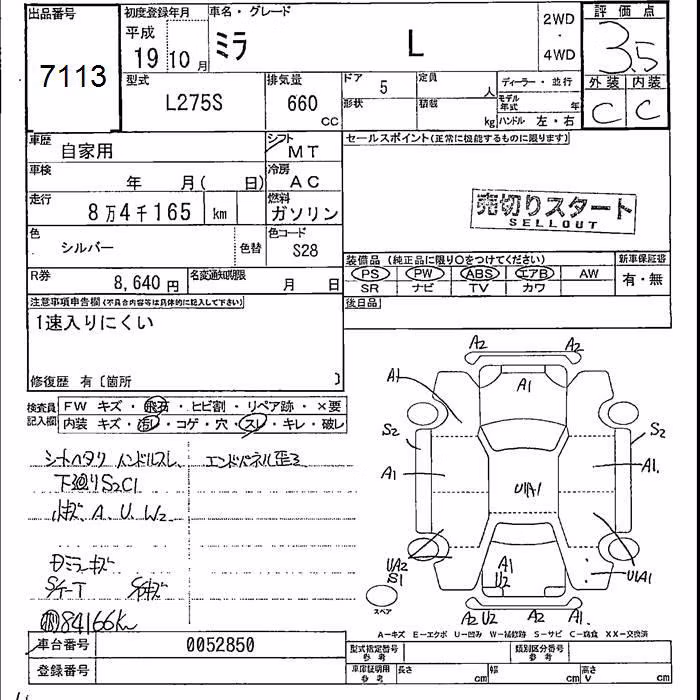 出品番号
7113
初度登録年月
平成
19 10 月
車名・グレード
ミラ L
2WD
・
4WD
評価点
3.5
型式
L275S
排気量
660
cc
ドア 5
形状
定員
人
積載
kg
ディーラー・並行
モデル年式 年
ハンドル 左・右
外装 内装
C C
車歴
自家用
シフト
MT
車検
年 月( 日)
冷房
AC
走行
8万4千165 km
燃料
ガソリン
色
シルバー
色替
色コード
S28
R券
8,640 円
名変通知期限
月 日
セールスポイント(正常に機能するものに限ります)
売切りスタート
SELLOUT
装備品(純正品に限り○をつけてください)
PS PW ABS エアB AW
SR ナビ TV カワ
新車保証書
有・無
後日品
注意事項申告欄(不具合内容等は具体的に記入して下さい)
1速入りにくい
修復歴 有〔箇所 〕
検査員記入欄
FW キズ・飛石・ヒビ割・リペア跡・×要
内装 キズ・汚レ・コゲ・穴・スレ・キレ・破レ
シートヘタリ ハンドルスレ エンドパネル歪ミ
下廻りS2C1
小キズ、A、U、W2
84166km
A2 A2
A1 A1
S2 S2
A1 A1
U1A1
UA2
S1
A1
U2
U1A1
スペア
A2 U2 A2 A1
A-キズ E-エクボ U-凹み W-補修跡 S-サビ C-腐食 XX-交換済
車台番号 0052850
登録番号
型式指定番号
参考
類別区分番号
参考
車庫証明用
参考
長さ cm
幅 cm
高さ cm